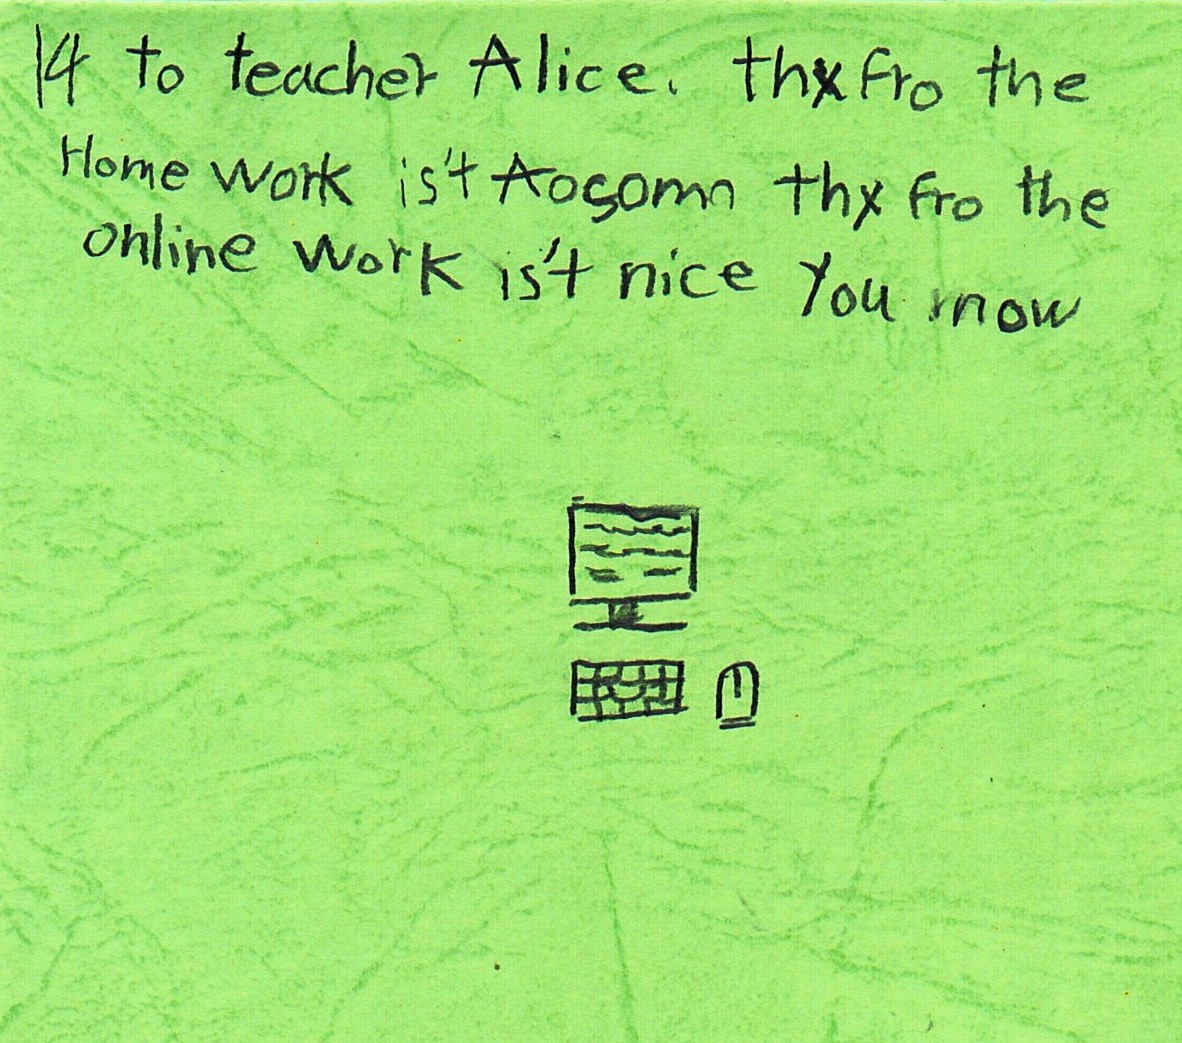 14 to teacher Alice. thx fro the
Home work is't Aogomn thx fro the
online work is't nice you mow